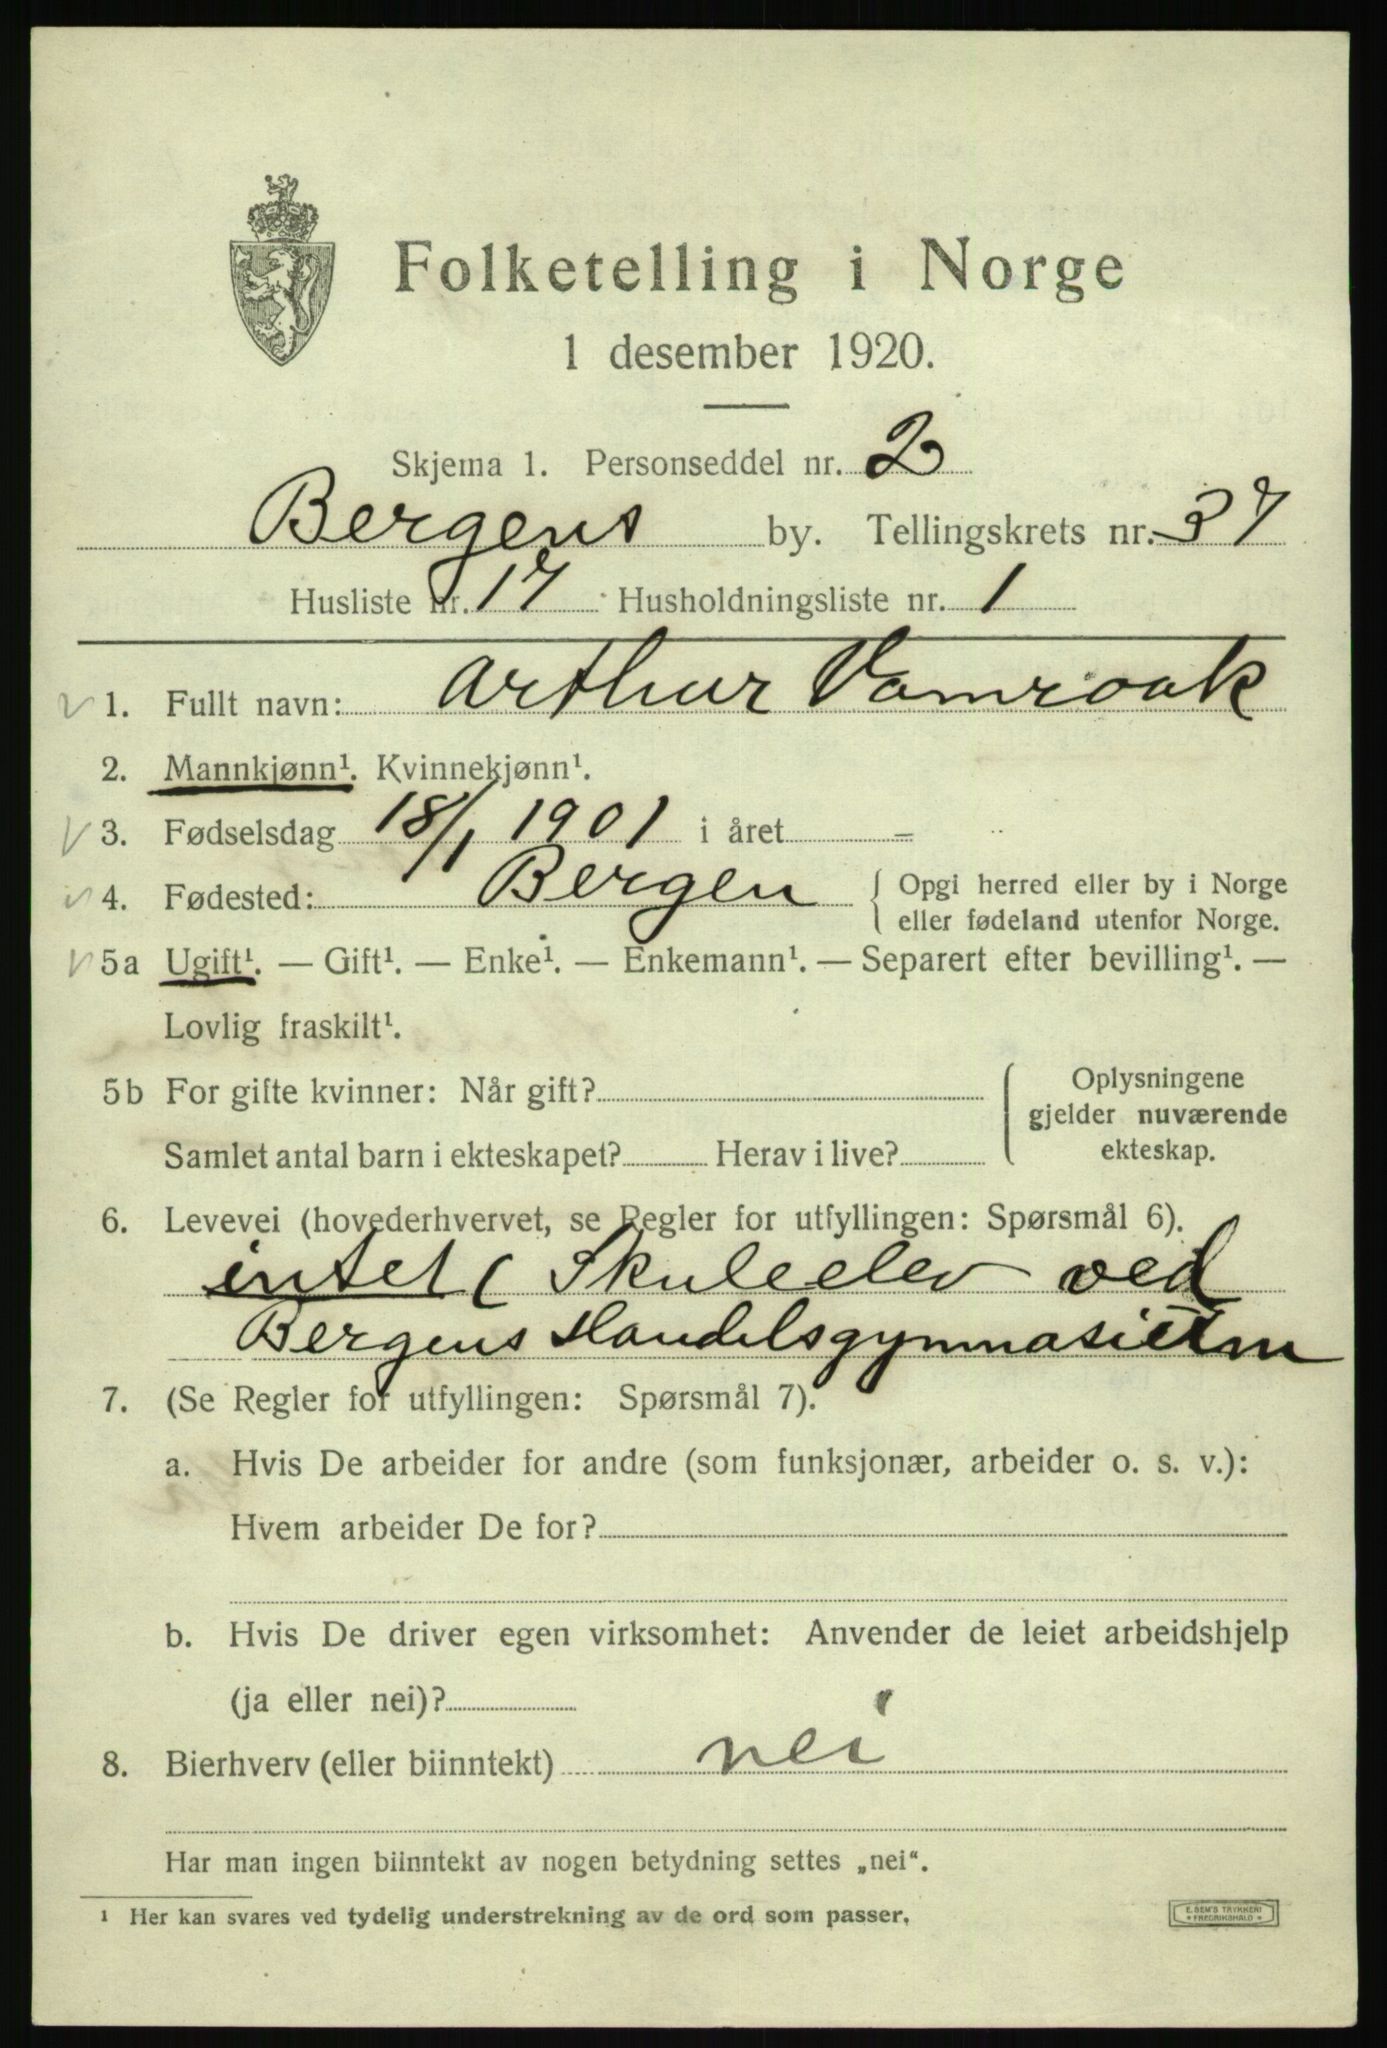 Folketelling i Norge
1 desember 1920.
Skjema 1. Personseddel nr. 2
Bergens by. Tellingskrets nr. 37
Husliste nr. 17 Husholdningsliste nr. 1
1. Fullt navn: Arthur Vamraak
2. Mannkjønn¹. Kvinnekjønn¹.
3. Fødselsdag 18/1 1901 i året –
4. Fødested: Bergen { Opgi herred eller by i Norge
eller fødeland utenfor Norge.
5a Ugift¹. — Gift¹. — Enke¹. — Enkemann¹. — Separert efter bevilling¹. —
Lovlig fraskilt¹.
5b For gifte kvinner: Når gift? { Oplysningene
gjelder nuværende
Samlet antal barn i ekteskapet? Herav i live? ekteskap.
6. Levevei (hovederhvervet, se Regler for utfyllingen: Spørsmål 6).
intet ( Skuleelev ved
Bergens Handelsgymnasium
7. (Se Regler for utfyllingen: Spørsmål 7).
a. Hvis De arbeider for andre (som funksjonær, arbeider o. s. v.):
Hvem arbeider De for?
b. Hvis De driver egen virksomhet: Anvender de leiet arbeidshjelp
(ja eller nei)?
8. Bierhverv (eller biinntekt) nei
Har man ingen biinntekt av nogen betydning settes „nei“.
¹ Her kan svares ved tydelig understrekning av de ord som passer.
E. SEM'S TRYKKERI
* FREDRIKSHALD *